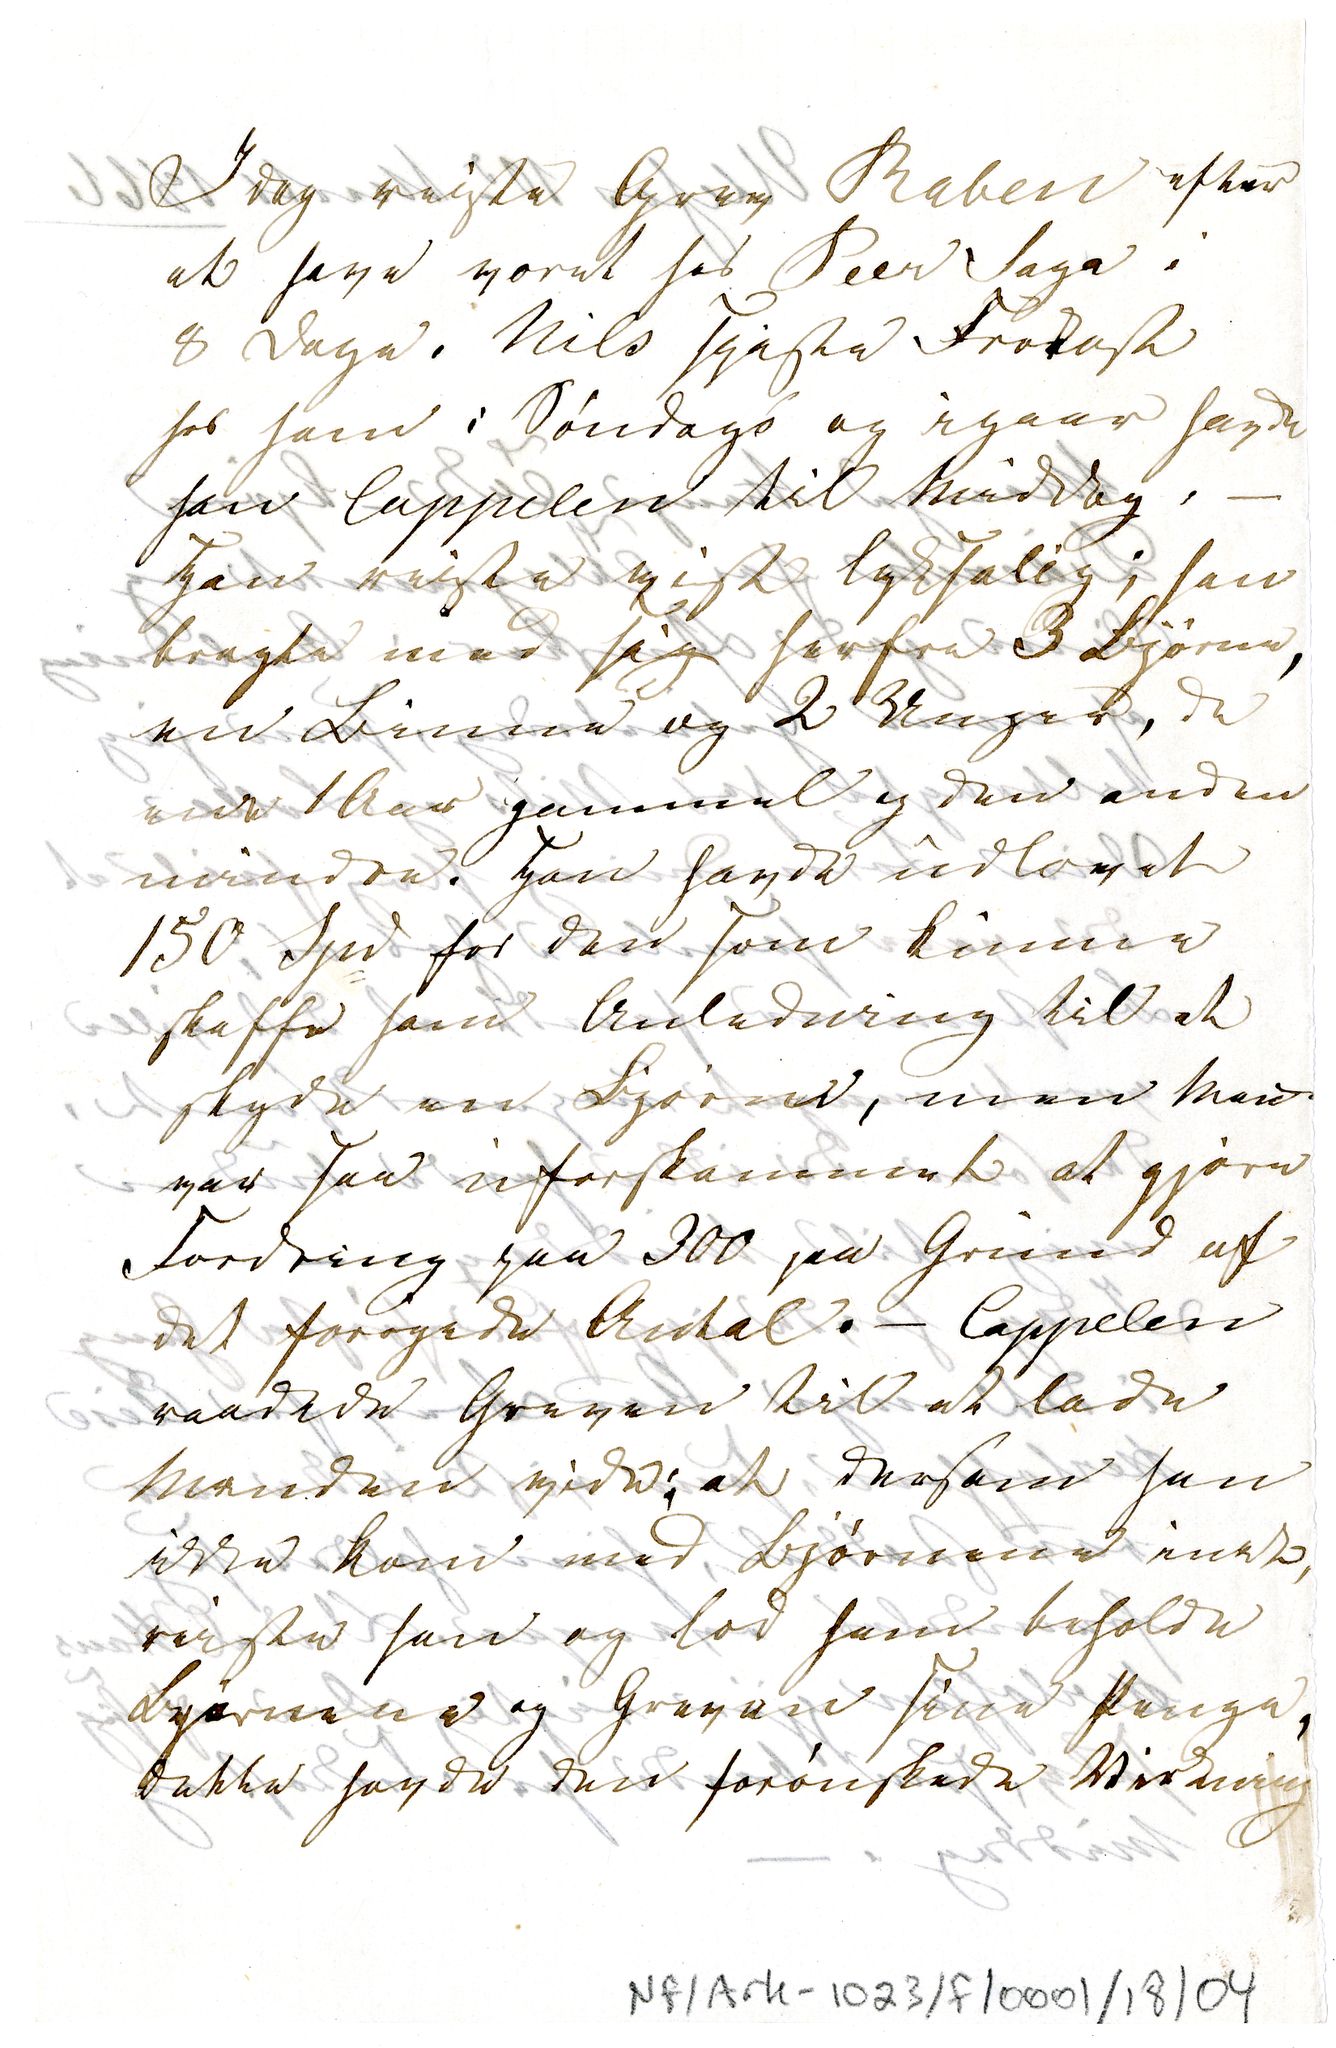 I dag reiste Grev Raben efter
at have været hos Peer Saga i
8 Dage. Nils spiste Frokost
hos ham i Søndags og igaar havde
han Cappelen til Middag. —
Han reiste vist lyksalig; han
bragte med sig herfra 3 Bjørne,
en Binne og 2 Unger, de
ene 1 Aar gammel og den anden
mindre. Han havde udlovet
150 Spd for den som kunne
skaffe ham Anledning til at
skyde en Bjørn, men Man
var saa uforskammet at gjøre
Fordring paa 300 paa Grund af
det forøgede Antal. — Cappelen
raadede Greven til at lade
Manden vide; at dersom han
ikke kom med Bjørnene inat,
reiste han og lod ham beholde
Bjørnene og Greven sine Penge,
dette havde den forønskede Virkning
NF/Ark-1023/F/0001/18/04